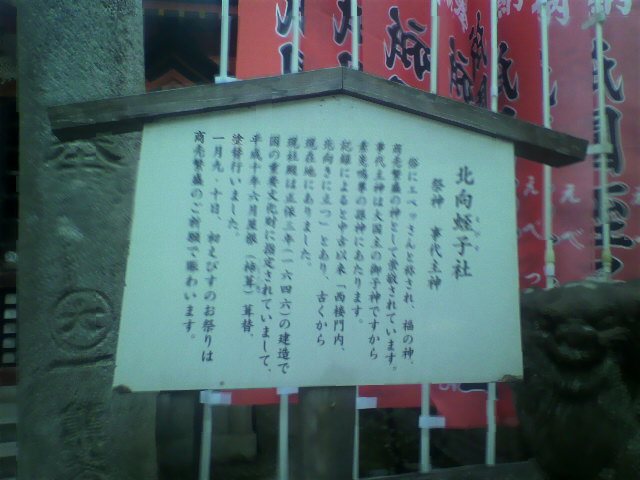 北向蛭子社
えびす
祭神　事代主神
俗にエべっさんと称され、福の神、
商売繁盛の神として崇敬されています。
事代主神は大国主の御子神ですから
素戔嗚尊の孫神にあたります。
記録によると中古以来「西楼門内、
北向きに立つ」とあり、古くから
現在地にありました。
現社殿は正保三年（一六四六）の建造で
国の重要文化財に指定されていまして、
平成十年六月屋根（柿葺）葺替、
塗替行いました。
一月九・十日、初えびすのお祭りは
商売繁盛のご祈願で賑わいます。